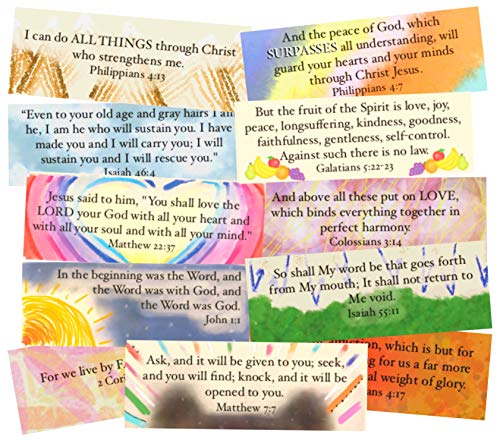 I can do ALL THINGS through Christ
who strengthens me.
Philippians 4:13
And the peace of God, which
SURPASSES all understanding, will
guard your hearts and your minds
through Christ Jesus.
Philippians 4:7
"Even to your old age and gray hairs I am
he, I am he who will sustain you. I have
made you and I will carry you; I will
sustain you and I will rescue you."
Isaiah 46:4
But the fruit of the Spirit is love, joy,
peace, longsuffering, kindness, goodness,
faithfulness, gentleness, self-control.
Against such there is no law.
Galatians 5:22-23
Jesus said to him, "You shall love the
LORD your God with all your heart and
with all your soul and with all your mind."
Matthew 22:37
And above all these put on LOVE,
which binds everything together in
perfect harmony.
Colossians 3:14
In the beginning was the Word, and
the Word was with God, and
the Word was God.
John 1:1
So shall My word be that goes forth
from My mouth; It shall not return to
Me void.
Isaiah 55:11
For we live by
2
Ask, and it will be given to you; seek,
and you will find; knock, and it will be
opened to you.
Matthew 7:7
which is but for
for us a far more
weight of glory.
4:17